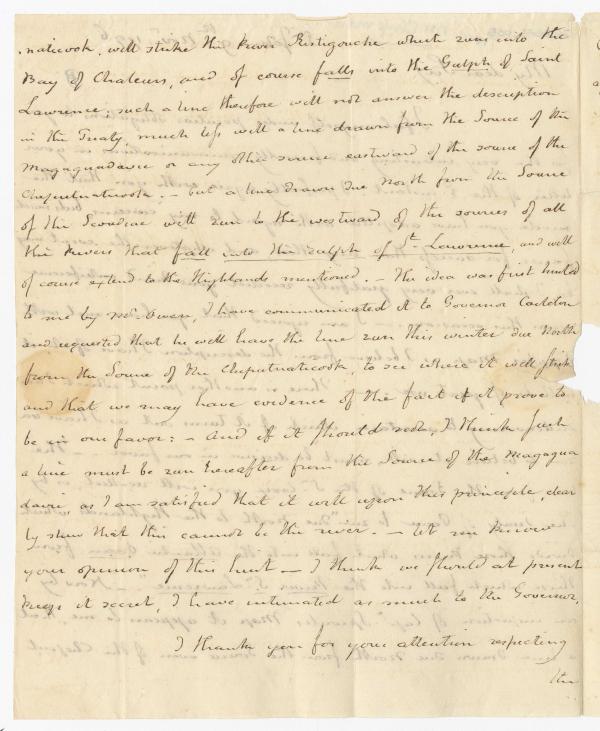 naticook, will strike the River Ristigouche which runs into the
Bay of Chaleurs, and of course falls into the Gulph of Saint
Lawrence; such a line therefore will not answer the description
in the Treaty, much less will a line drawn from the Source of the
Magaguadavic or any other source eastward of the source of the
Cheputnaticook. - but a line drawn due North from the Source
of the Scoudiac will run to the westward of the sources of all
the Rivers that fall into the Gulph of St. Lawrence, and will
of course extend to the Highlands mentioned. - The idea was first hinted
to me by Mr. Owen, I have communicated it to Governor Carleton
and requested that he will have the line run this winter due North
from the Source of the Cheputnaticook, to see where it will strike
and that we may have evidence of the fact if it prove to
be in our favor: - And if it should not, I think such
a line must be run hereafter from the Source of the Magagua
davic as I am satisfied that it will upon this principle, clear
ly shew that this cannot be the river. - Let me know
your opinion of this hint - I think we should at present
keep it secret, I have intimated as much to the Governor.
I thank you for your attention respecting
the